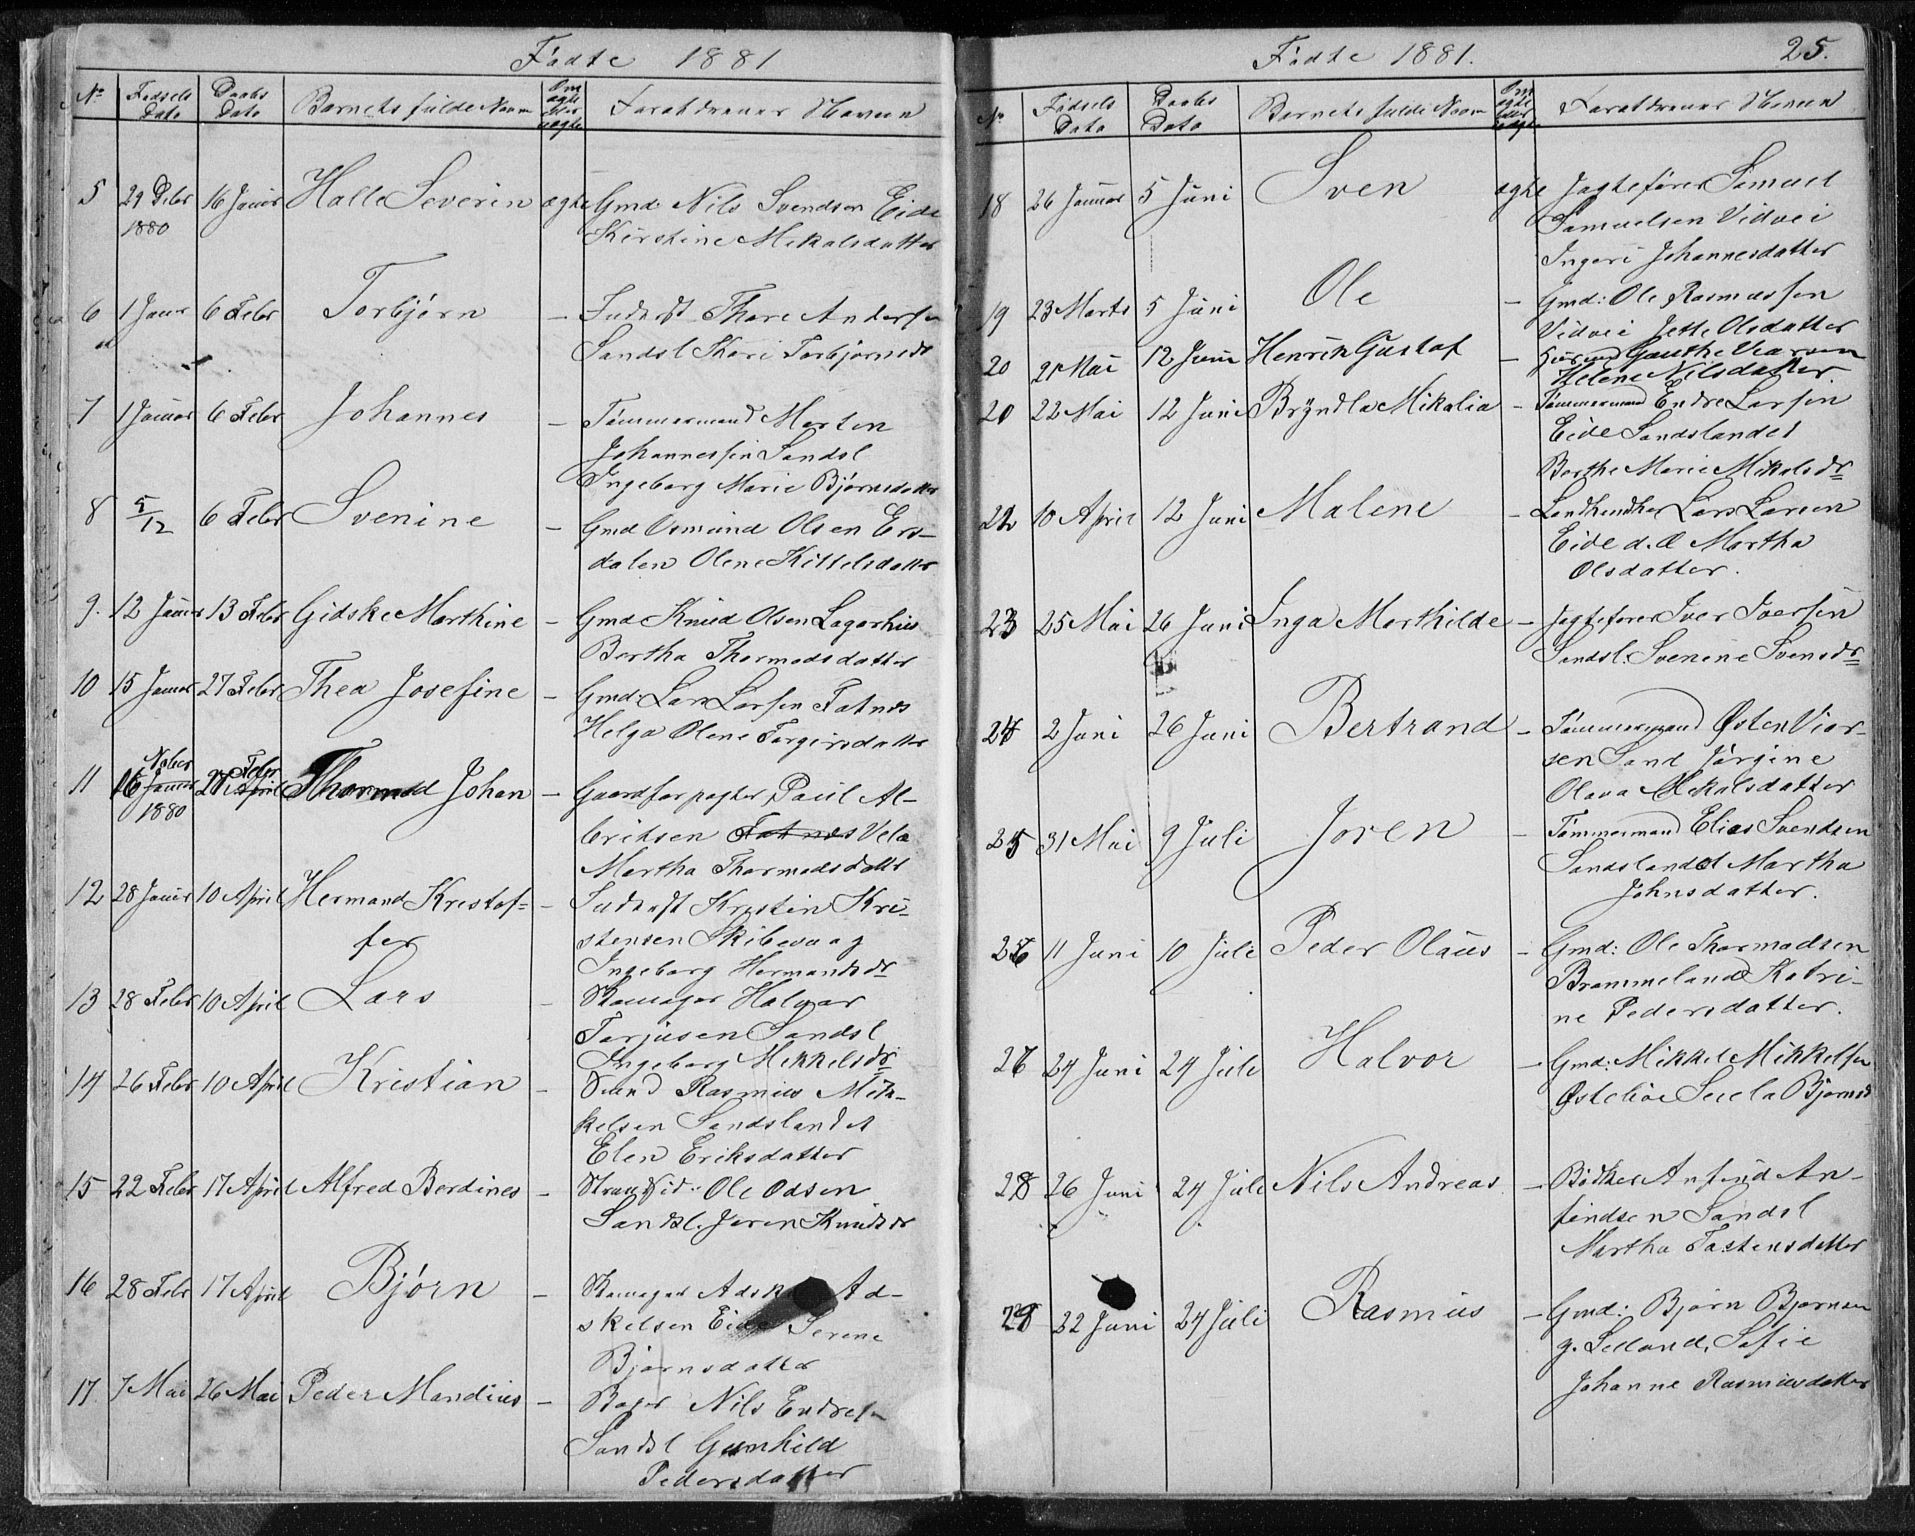 Fødte 1881
No Fødsels Dato Daabs Dato Barnets fulde Navn Om ægte eller uægte Forældrenes Navne
5 29 Debr 16 Januar Halle Severin ægte Gmd. Nils Svendsen Eide
1880 Kirstine Mikalsdatter
6 1 Januar 6 Febr Torbjørn - Thore Anderssen
Sandsl Kari Torbjørnsdr
7 1 Januar 6 Febr Johannes - Tømmermand Morten
Johannessen Sandsl
Ingeborg Marie Bjørnsdatter
8 5/12 6 Febr Svenine - Gmd Osmund Olsen Ers-
dalen Olene Kittelsdatter
9. 12 Januar 13 Febr Gidske Marthine - Gmd Knud Olsen Lagarhus
Bertha Thormodsdatter
10 15 Januar 27 Febr Thea Josefine - Gmd: Lars Larsen Fatnes
Helga Olene Torgersdatter
Nober Febr
11 16 Januar 27 April Thormod Johan - Gaardforpagter Paul Al-
1880
briksen Fatnes Vela
Martha Thormodsdatter
12 28 Januar 10 April Hermand Kristof= - Kristen Kri-
fer stensen Skibevaag
Ingeborg Hermandsdr
13 28 Febr 10 April Lars - Skomager Halvor
Torjusen Sandsl
Ingeborg Mikkelsdr
14 26 Febr 10 April Kristian - Rasmus Mik-
kelsen Sandslandet
Elen Eriksdatter
15 22 Febr 17 April Alfred Berdines - Strandsid: Ole Odsen
Sandsl. Joren Knudsdr
16 28 Febr 17 April Bjørn - Skomager Ad-
skelsen Eide Serene
Bjørnsdatter
17. 7 Mai 26 Mai Peder Mandius - Bager Nils Endresen
Sandsl Gunhild
Pedersdatter
Fødte 1881. 25.
No Fødsels Dato Daabs Dato Barnets fulde Navn Om ægte eller uægte Forældrenes Navne
18 26 Januar 5 Juni Sven ægte Jagtefører Samuel
Samuelsen Vidvei
Ingeri Johannesdatter
19 23 Marts 5 Juni Ole - Gmd: Ole Rasmussen
Vidvei Jette Olsdatter
20 21 Mai 12 Juni Henrik Gustaf - Gauthe
Helene Nilsdatter.
21 22 Mai 12 Juni Bryndla Mikalia - Tømmermand Endre Larsen
Eide Sandslandet
Berthe Marie Mikalsdr
22 10 April 12 Juni Malene - Landhandler Lars Larsen
Eide d.Æ Martha
Olsdatter.
23 25 Mai 26 Juni Inga Marthilde - Jagtefører Iver Iversen
Sandsl. Svenine Svensdr
24 2 Juni 26 Juni Bertrand - Tømmermand Østen Vier-
sen Sand Jørgine
Olava Mikalsdatter
25 31 Mai 9 Juli Joren - Tømmermand Elias Svendsen
Sandslandet Martha
Johnsdatter.
26 11 Juni 10 Juli Peder Olaus - Gmd: Ole Thormodsen
Brommeland Katri-
ne Pedersdatter.
27 24 Juni 24 Juli Halvor - Gmd: Mikkel Mikkelsen
Østebøe Seela Bjørnsd
28 26 Juni 24 Juli Nils Andreas - Bødker Anfind An-
findsen Sandsl
Martha Tostensdatter
29 22 Juni 24 Juli Rasmus - Gmd: Bjørn Bjørnsen
g. Selland, Sofie
Johanne Rasmusdatter